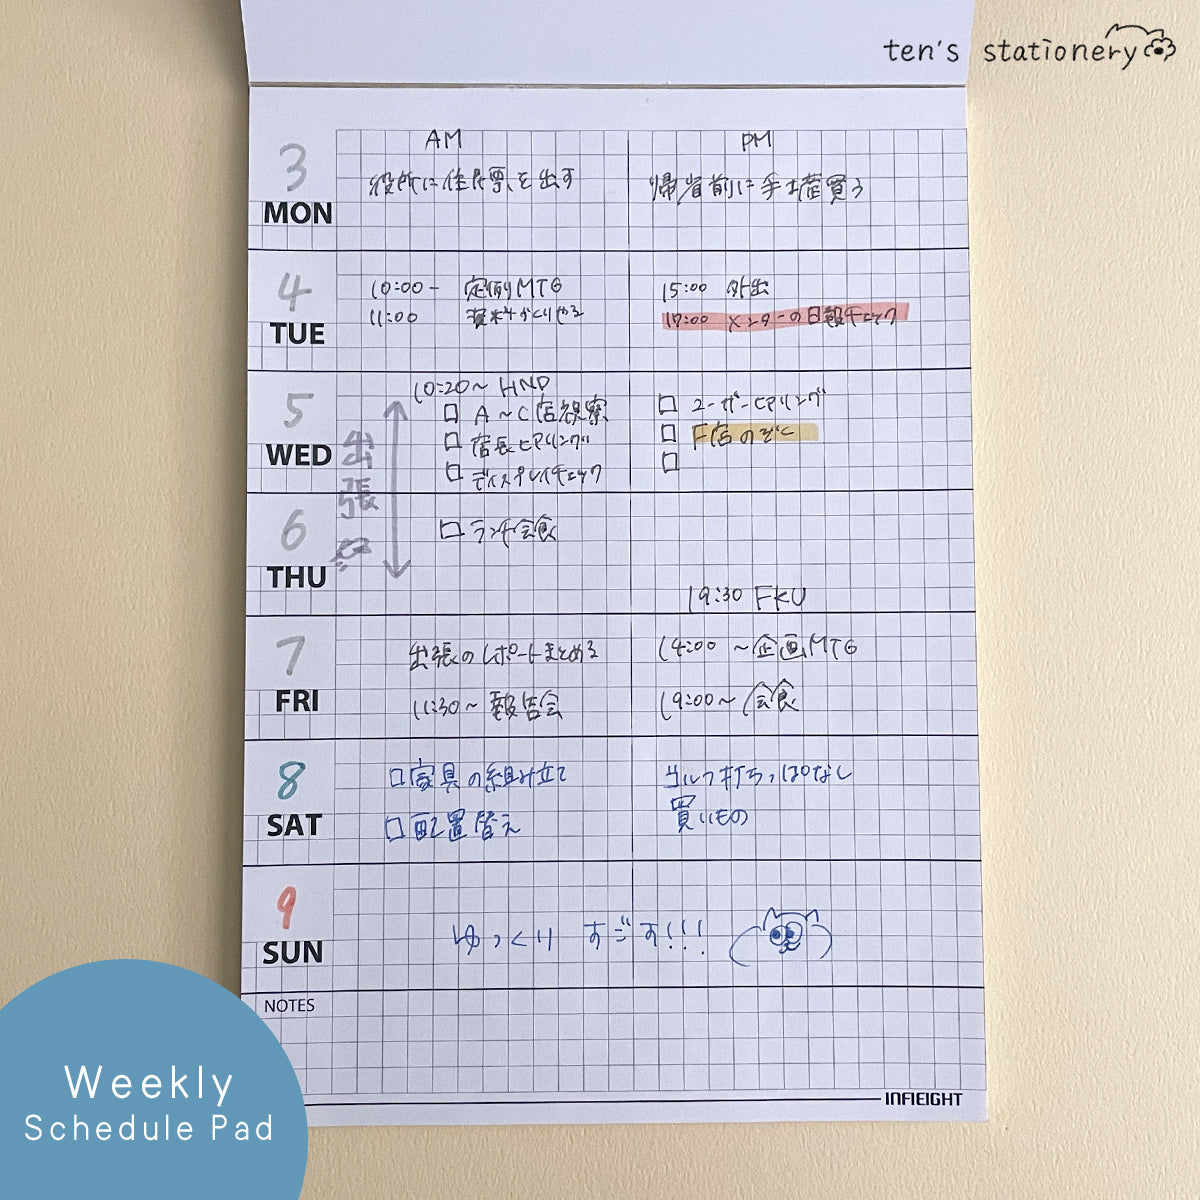 ten's stationery
AM PM
3 MON 役所に住民票を出す 帰省前に手土産買う
4 TUE 10:00- 定例MTG 15:00 外出
11:00 資料づくりやる 17:00 メンターの日報チェック
5 WED 出張 10:20〜 HND
□ A〜C店視察 □ ユーザーヒアリング
□ 店長ヒアリング □ F店のぞく
□ ディスプレイチェック □
6 THU □ ランチ会食
19:30 FKU
7 FRI 出張のレポートまとめる 14:00 〜企画MTG
11:30〜 報告会 19:00〜 会食
8 SAT □家具の組み立て ゴルフ打ちっぱなし
□配置替え 買いもの
9 SUN ゆっくり すごす!!!
NOTES
INFIEIGHT
Weekly
Schedule Pad